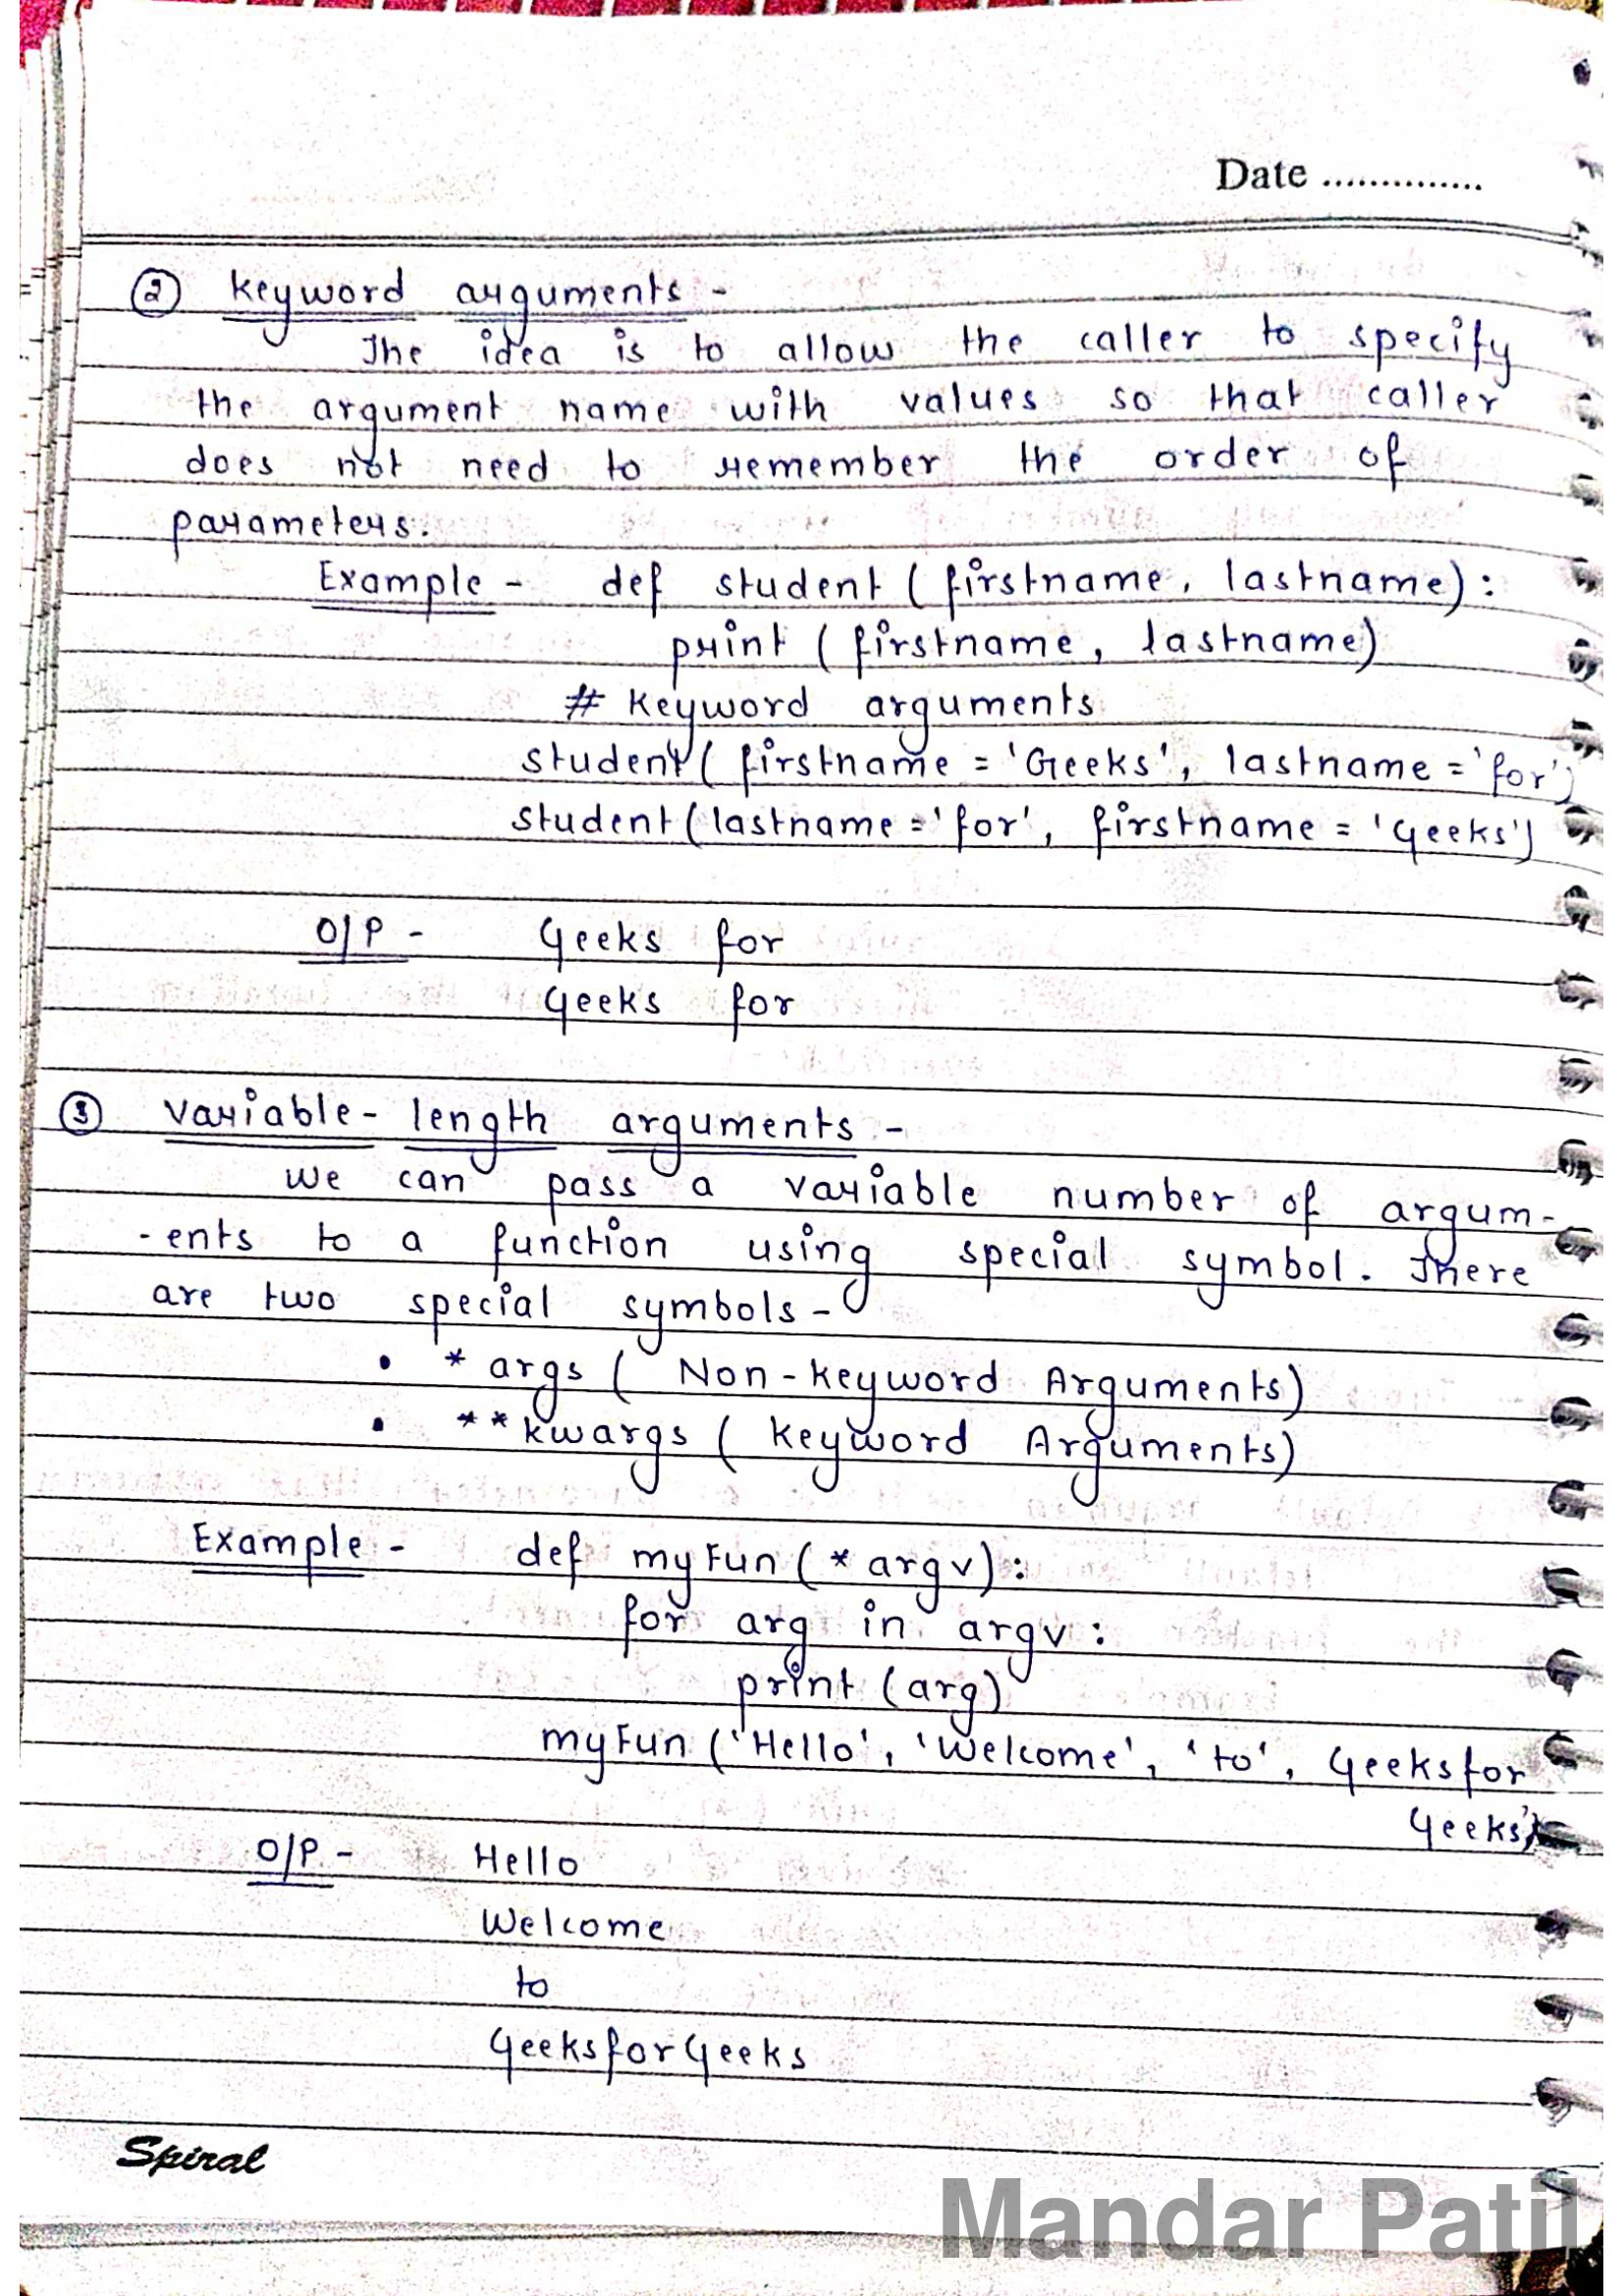 Date ..............
② Keyword arguments -
The idea is to allow the caller to specify
the argument name with values so that caller
does not need to remember the order of
parameters.
Example - def student ( firstname, lastname) :
print ( firstname, lastname)
# Keyword arguments
student ( firstname = 'Geeks', lastname = 'for')
student ( lastname = 'for', firstname = 'Geeks')
O/P - Geeks for
Geeks for
③ Variable - length arguments -
We can pass a variable number of argum-
- ents to a function using special symbol. There
are two special symbols -
• * args ( Non - Keyword Arguments)
• ** kwargs ( Keyword Arguments)
Example - def myFun ( * argv) :
for arg in argv :
print (arg)
myFun ('Hello', 'Welcome', 'to', Geeksfor
Geeks')
O/P - Hello
Welcome
to
GeeksforGeeks
Spiral
Mandar Patil